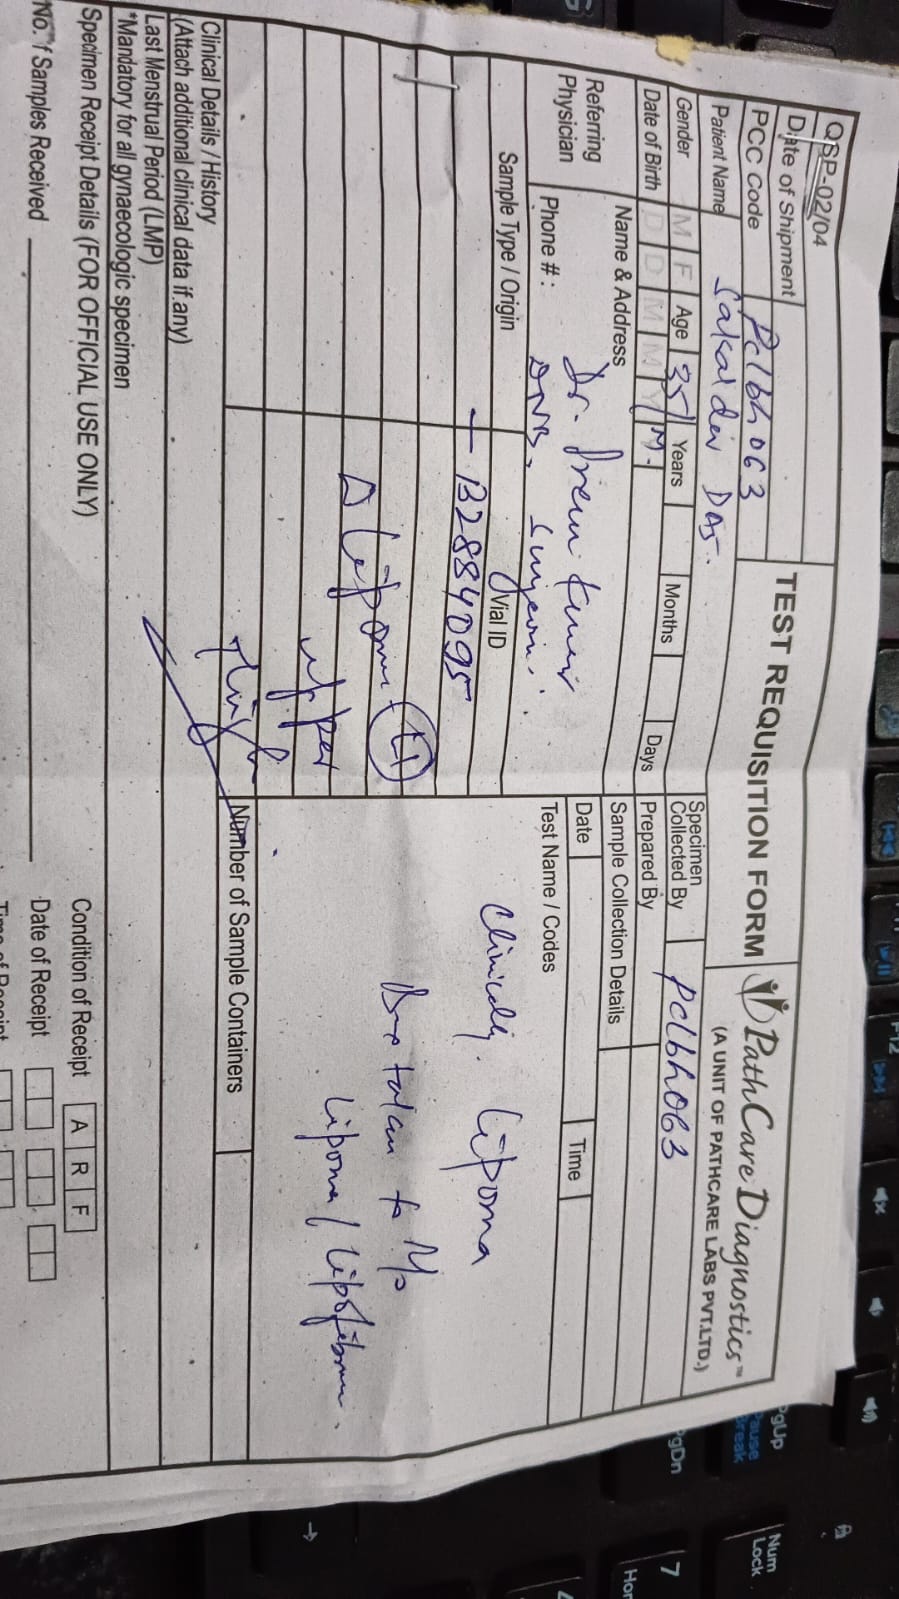 QSP-02/04
TEST REQUISITION FORM
PathCare Diagnostics™
(A UNIT OF PATHCARE LABS PVT.LTD.)
Date of Shipment
PCC Code Pclbh063
Patient Name Sakaldev Das.
Specimen Collected By Pclbh063
Gender M F Age 35/M. Years Months Days
Prepared By
Date of Birth D D M M Y
Sample Collection Details
Referring Physician
Name & Address
Dr. Prem Kumar
DNB, Surgeon.
Phone # :
Date Time
Sample Type / Origin
Vial ID
Test Name / Codes
B2884095
Clinically. Lipoma
Δ Lipoma (Lt)
upper
thigh
to
Lipoma / Lipofibroma.
Clinical Details / History
(Attach additional clinical data if any)
Number of Sample Containers
Last Menstrual Period (LMP)
*Mandatory for all gynaecologic specimen
Specimen Receipt Details (FOR OFFICIAL USE ONLY)
Condition of Receipt A R F
No. of Samples Received
Date of Receipt
Time of Receipt
F12
PgUp
Pause
Break
PgDn
Num
Lock
7